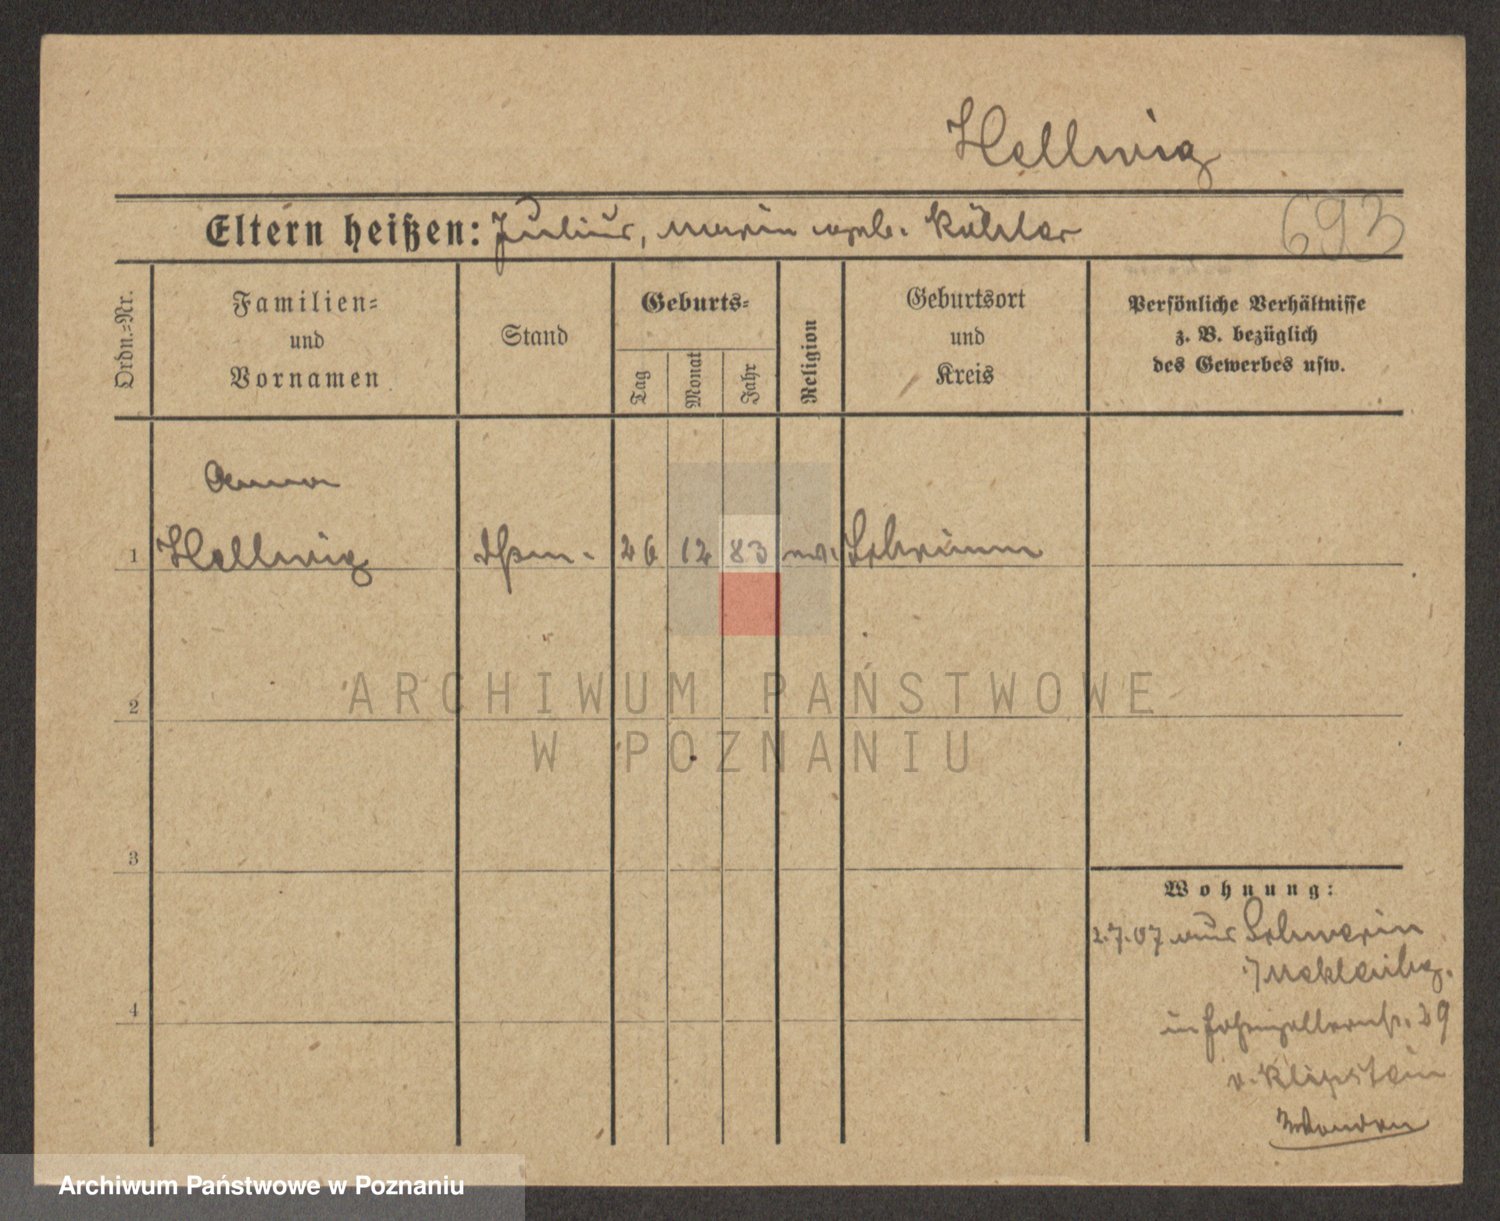 Hellwig
Eltern heißen: Julius, Marie geb. Köhler
693
Ordn.=Nr.
Familien=
und
Vornamen
Stand
Geburts=
Tag
Monat
Jahr
Religion
Geburtsort
und
Kreis
Persönliche Verhältnisse
z. B. bezüglich
des Gewerbes usw.
Anna
1 Hellwig 26 12 83 ev. Schrimm
2
3
4
Wohnung:
2.7.07 aus Schwerin
i/Mecklenbg.
in Hohenzollernstr. 29
v. Klipstein
ARCHIWUM PAŃSTWOWE
W POZNANIU
Archiwum Państwowe w Poznaniu